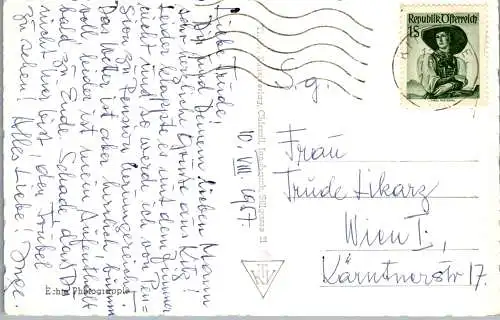 Liebe Trude!
Dir und Deinem lieben Mann
sehr herzliche Grüße aus Kitz!
Leider klappte es mit dem Zimmer
nicht und so werde ich von Pen=
sion zu Pension herumgereicht.
Das Wetter ist aber herrlich, 
voll leider ist mein Aufenthalt
bald zu Ende. Schade dass Du
nicht hier bist, den Trubel
zu sehen! Alles Liebe! Inge.
10. VIII. 1957.
Echte Photographie
Republik Österreich
1S
S.g.
Frau
Trude Likarz
Wien I.,
Kärntnerstr 17.